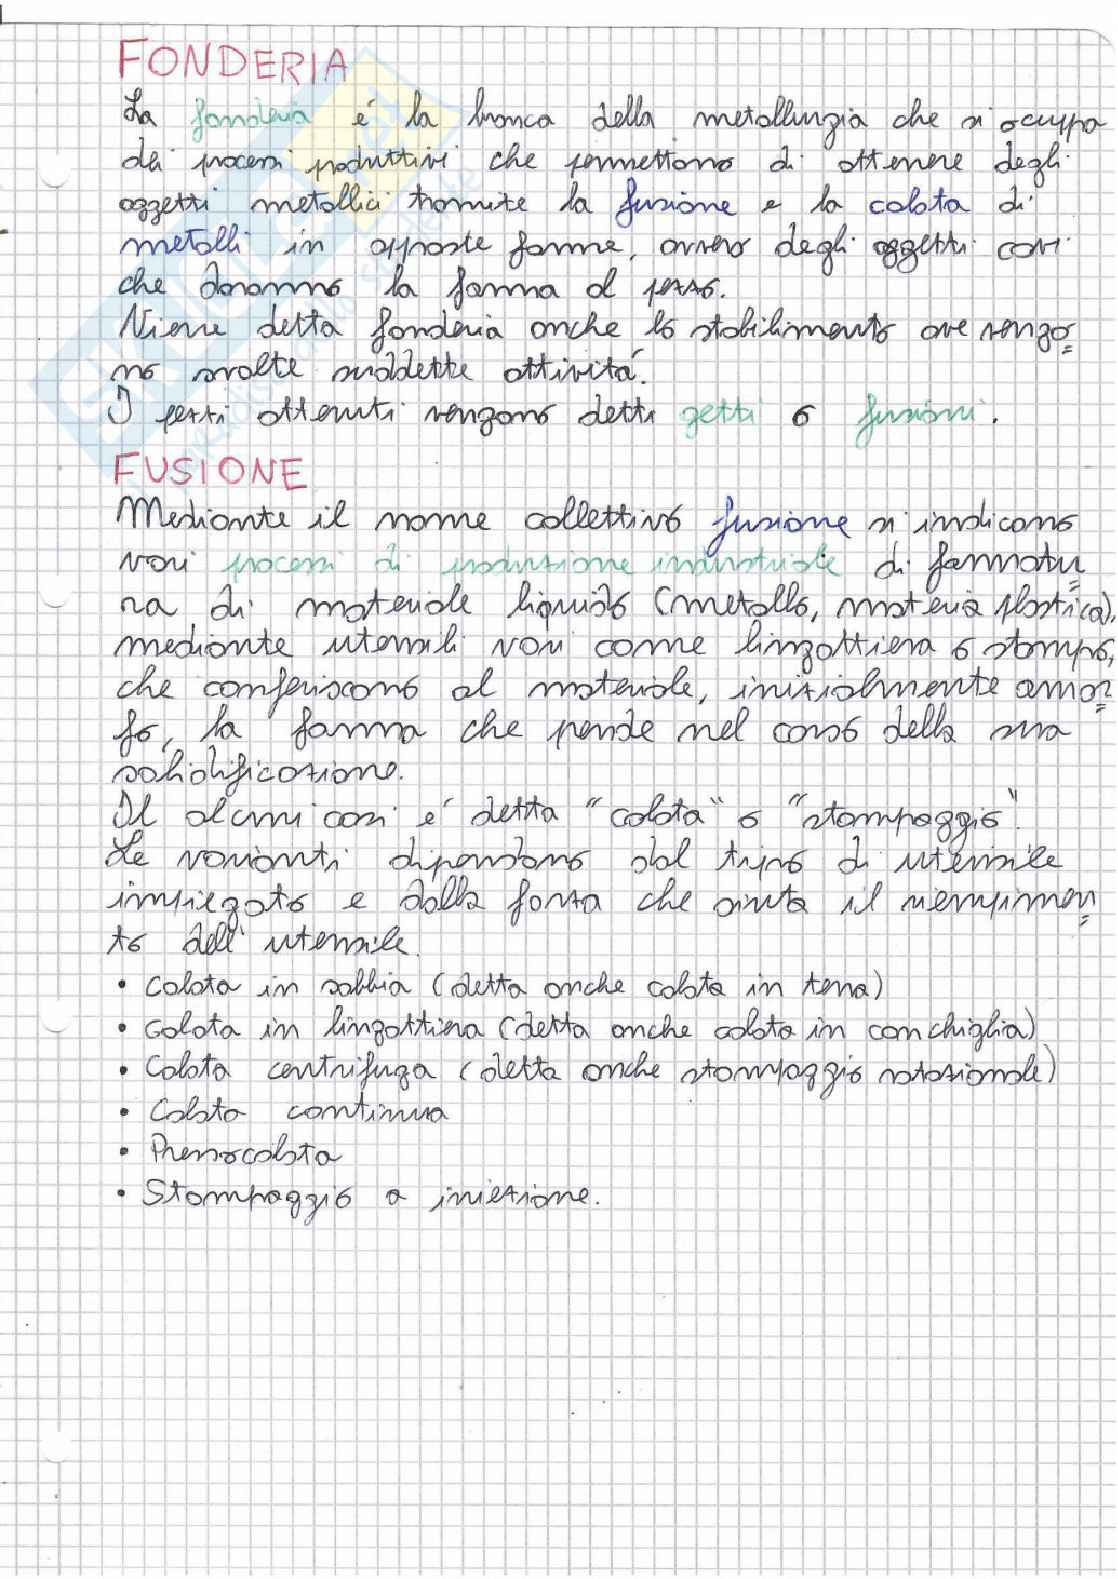 FONDERIA
La fonderia é la branca della metallurgia che si occupa
dei processi produttivi che permettono di ottenere degli
oggetti metallici tramite la fusione e la colata di
metalli in apposte forme, ovvero degli oggetti cavi
che daranno la forma al pezzo.
Viene detta fonderia anche lo stabilimento ove vengo=
no svolte suddette attivitá.
I pezzi ottenuti vengono detti getti o fusioni.
FUSIONE
Mediante il nome collettivo fusione si indicano
vari processi di produzione industriale di formatu=
ra di materiale liquido (metallo, materia plastica),
mediante utensili vari come lingottiera o stampo,
che conferiscono al materiale, inizialmente amor=
fo, la forma che prende nel corso della sua
solidificazione.
In alcuni casi é detta "colata" o "stampaggio".
Le varianti dipendono dal tipo di utensile
impiegato e dalla forza che aiuta il riempimen=
to dell'utensile.
• Colata in sabbia (detta anche colata in terra)
• Colata in lingottiera (detta anche colata in conchiglia)
• Colata centrifuga (detta anche stampaggio rotazionale)
• Colata continua
• Pressocolata
• Stampaggio a iniezione.